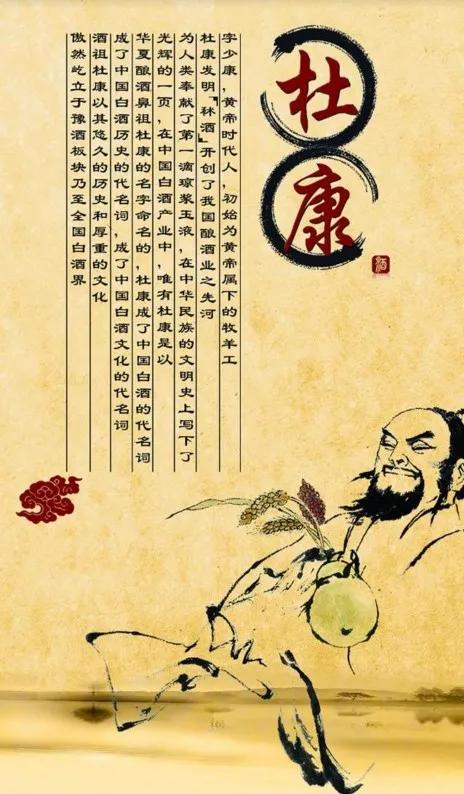 杜康
字少康，黄帝时代人，初始为黄帝属下的牧羊工
杜康发明「秫酒」开创了我国酿酒业之先河
为人类奉献了第一滴琼浆玉液，在中华民族的文明史上写下了
光辉的一页，在中国白酒产业中，唯有杜康是以
华夏酿酒鼻祖杜康的名字命名的，杜康成了中国白酒的代名词
成了中国白酒历史的代名词，成了中国白酒文化的代名词
酒祖杜康以其悠久的历史和厚重的文化
傲然屹立于豫酒板块乃至全国白酒界
酒